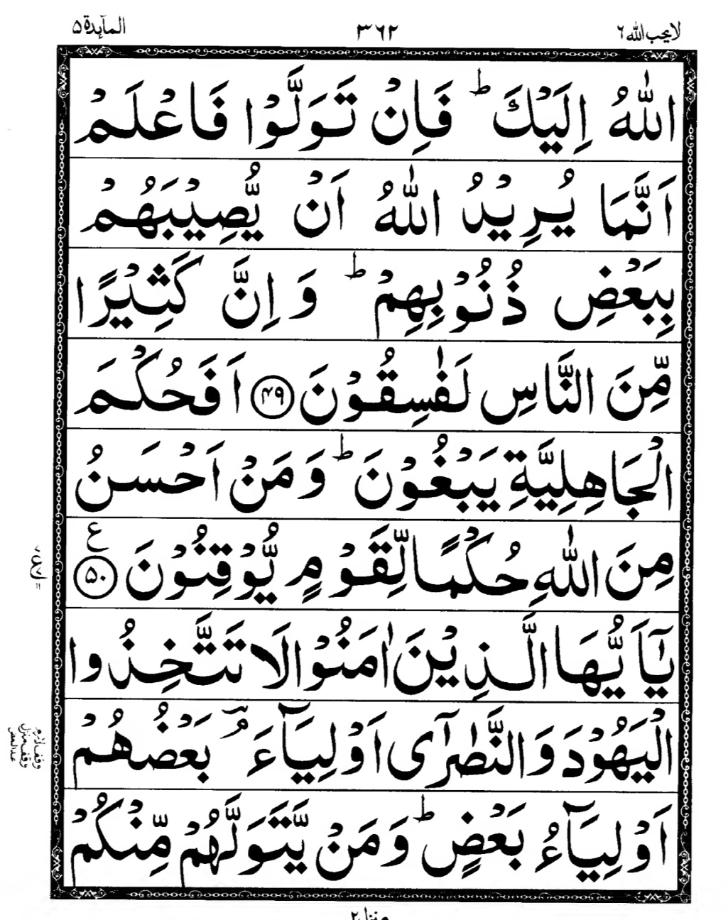 لا يحب الله ٦ ٣٦٢ المآئدة ٥
اللّٰهُ اِلَيْكَ ؕ فَاِنْ تَوَلَّوْا فَاعْلَمْ
اَنَّمَا يُرِيْدُ اللّٰهُ اَنْ يُّصِيْبَهُمْ
بِبَعْضِ ذُنُوْبِهِمْ ؕ وَ اِنَّ كَثِيْرًا
مِّنَ النَّاسِ لَفٰسِقُوْنَ ﴿۴۹﴾ اَفَحُكْمَ
الْجَاهِلِيَّةِ يَبْغُوْنَ ؕ وَ مَنْ اَحْسَنُ
مِنَ اللّٰهِ حُكْمًا لِّقَوْمٍ يُّوْقِنُوْنَ ﴿۵۰﴾ ع
يٰۤاَيُّهَا الَّذِيْنَ اٰمَنُوْا لَا تَتَّخِذُوا
الْيَهُوْدَ وَ النَّصٰرٰۤى اَوْلِيَآءَ ؔۘ بَعْضُهُمْ
اَوْلِيَآءُ بَعْضٍ ؕ وَ مَنْ يَّتَوَلَّهُمْ مِّنْكُمْ
منزل ٢